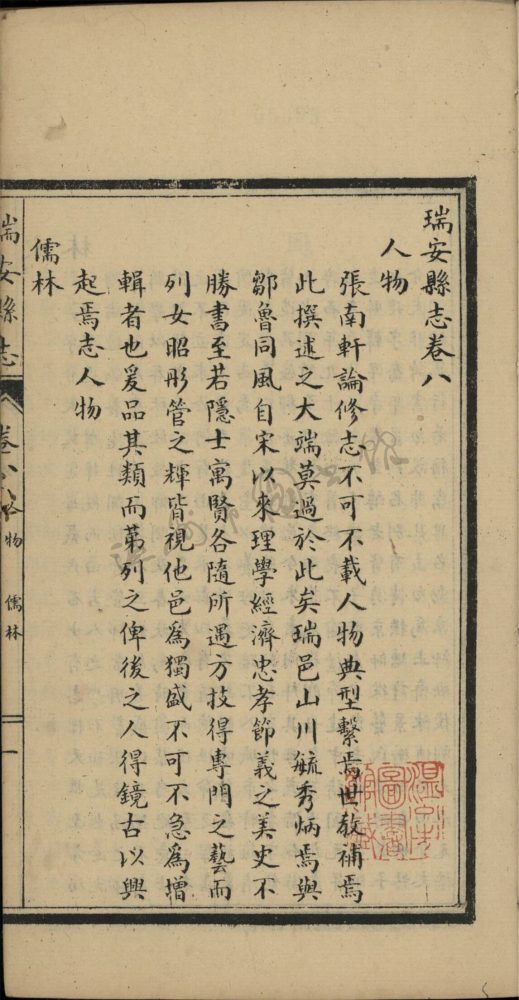 瑞安縣志卷八
人物
張南軒論修志不可不載人物典型繫焉世教補焉
此撰述之大端莫過於此矣瑞邑山川毓秀炳焉與
鄒魯同風自宋以來理學經濟忠孝節義之美史不
勝書至若隱士寓賢各隨所遇方技得專門之藝而
列女昭彤管之輝皆視他邑為獨盛不可不急為增
輯者也爰品其類而苐列之俾後之人得鏡古以興
起焉志人物
儒林
瑞安縣志 卷八 人物 儒林 一